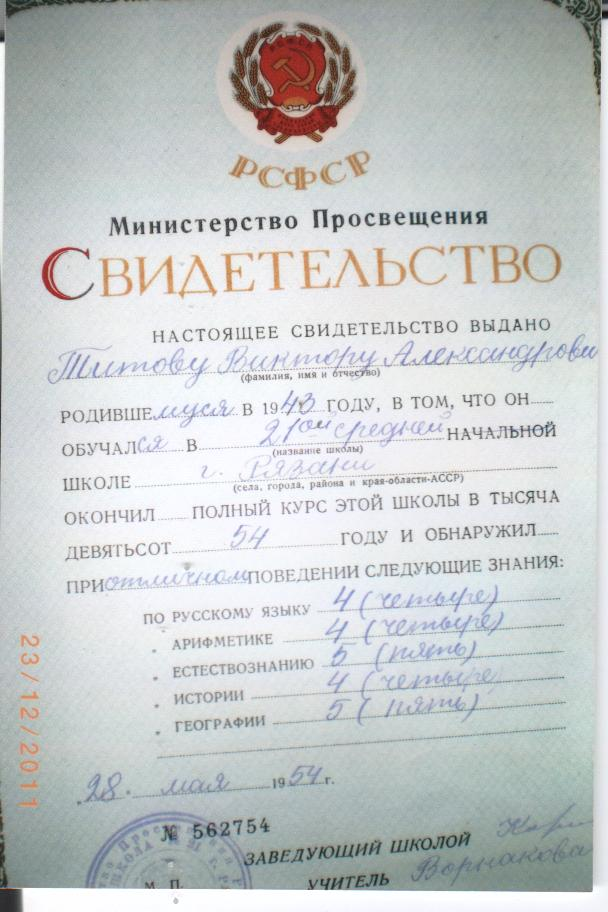 РСФСР
РСФСР
Министерство Просвещения
СВИДЕТЕЛЬСТВО
НАСТОЯЩЕЕ СВИДЕТЕЛЬСТВО ВЫДАНО
Титову Виктору Александрови
(фамилия, имя и отчество)
РОДИВШЕмуся В 1943 ГОДУ, В ТОМ, ЧТО ОН
ОБУЧАЛся В 21ой средней НАЧАЛЬНОЙ
(название школы)
ШКОЛЕ г. Рязани
(села, города, района и края-области-АССР)
ОКОНЧИЛ ПОЛНЫЙ КУРС ЭТОЙ ШКОЛЫ В ТЫСЯЧА
ДЕВЯТЬСОТ 54 ГОДУ И ОБНАРУЖИЛ
ПРИ отличном ПОВЕДЕНИИ СЛЕДУЮЩИЕ ЗНАНИЯ:
ПО РУССКОМУ ЯЗЫКУ 4 (четыре)
„ АРИФМЕТИКЕ 4 (четыре)
„ ЕСТЕСТВОЗНАНИЮ 5 (пять)
„ ИСТОРИИ 4 (четыре)
„ ГЕОГРАФИИ 5 (пять)
28. мая 1954 г.
№ 562754
ЗАВЕДУЮЩИЙ ШКОЛОЙ
М. П. УЧИТЕЛЬ Ворнакова
23/12/2011